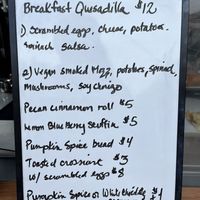 Breakfast Quesadilla $12
1) Scrambled eggs, cheese, potatoes,
spinach salsa.
2) Vegan smoked Mozz, potatoes, spinach,
Mushrooms, soy chorizo
Pecan cinnamon roll $5
Lemon Blueberry Stuffin $5
Pumpkin Spice bread $4
Toasted croissant $3
w/ scrambled eggs $8
Pumpkin Spice or White